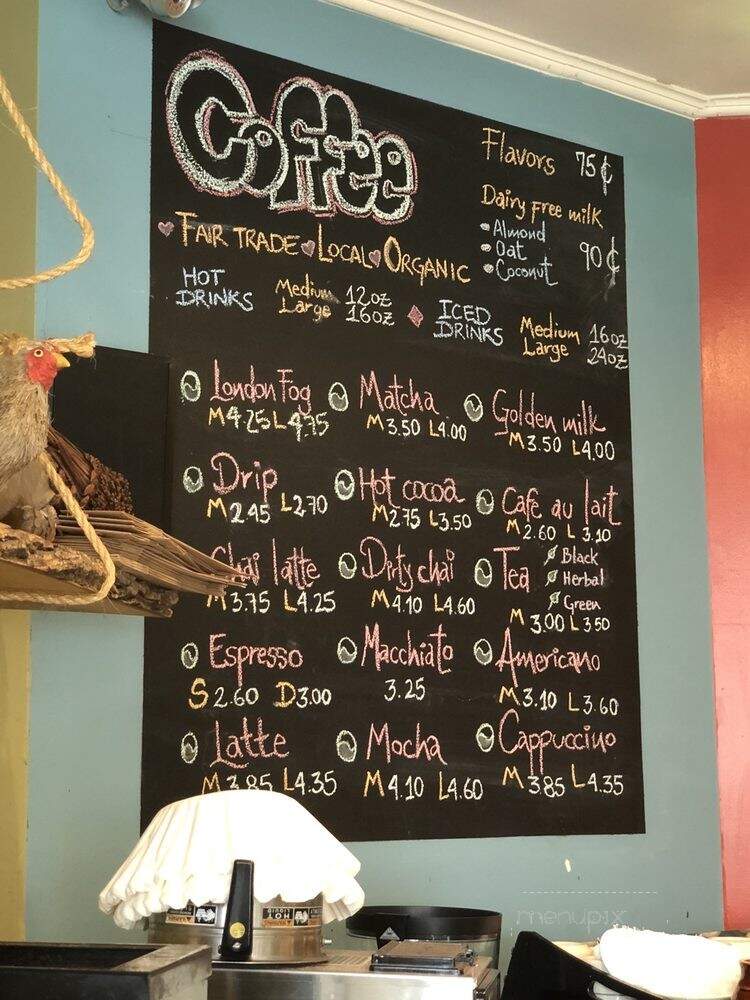 Coffee
FAIR TRADE LOCAL ORGANIC
Flavors 75¢
Dairy Free milk
Almond
Oat 90¢
Coconut
HOT DRINKS
Medium 12oz
Large 16oz
ICED DRINKS
Medium 16oz
Large 24oz
London Fog
M4.25 L4.75
Matcha
M3.50 L4.00
Golden milk
M3.50 L4.00
Drip
M2.45 L2.70
Hot cocoa
M2.75 L3.50
Cafe au lait
M2.60 L3.10
Chai latte
M3.75 L4.25
Dirty chai
M4.10 L4.60
Tea
Black
Herbal
Green
M3.00 L3.50
Espresso
S2.60 D3.00
Macchiato
3.25
Americano
M3.10 L3.60
Latte
M3.85 L4.35
Mocha
M4.10 L4.60
Cappuccino
M3.85 L4.35
HOT
menupix